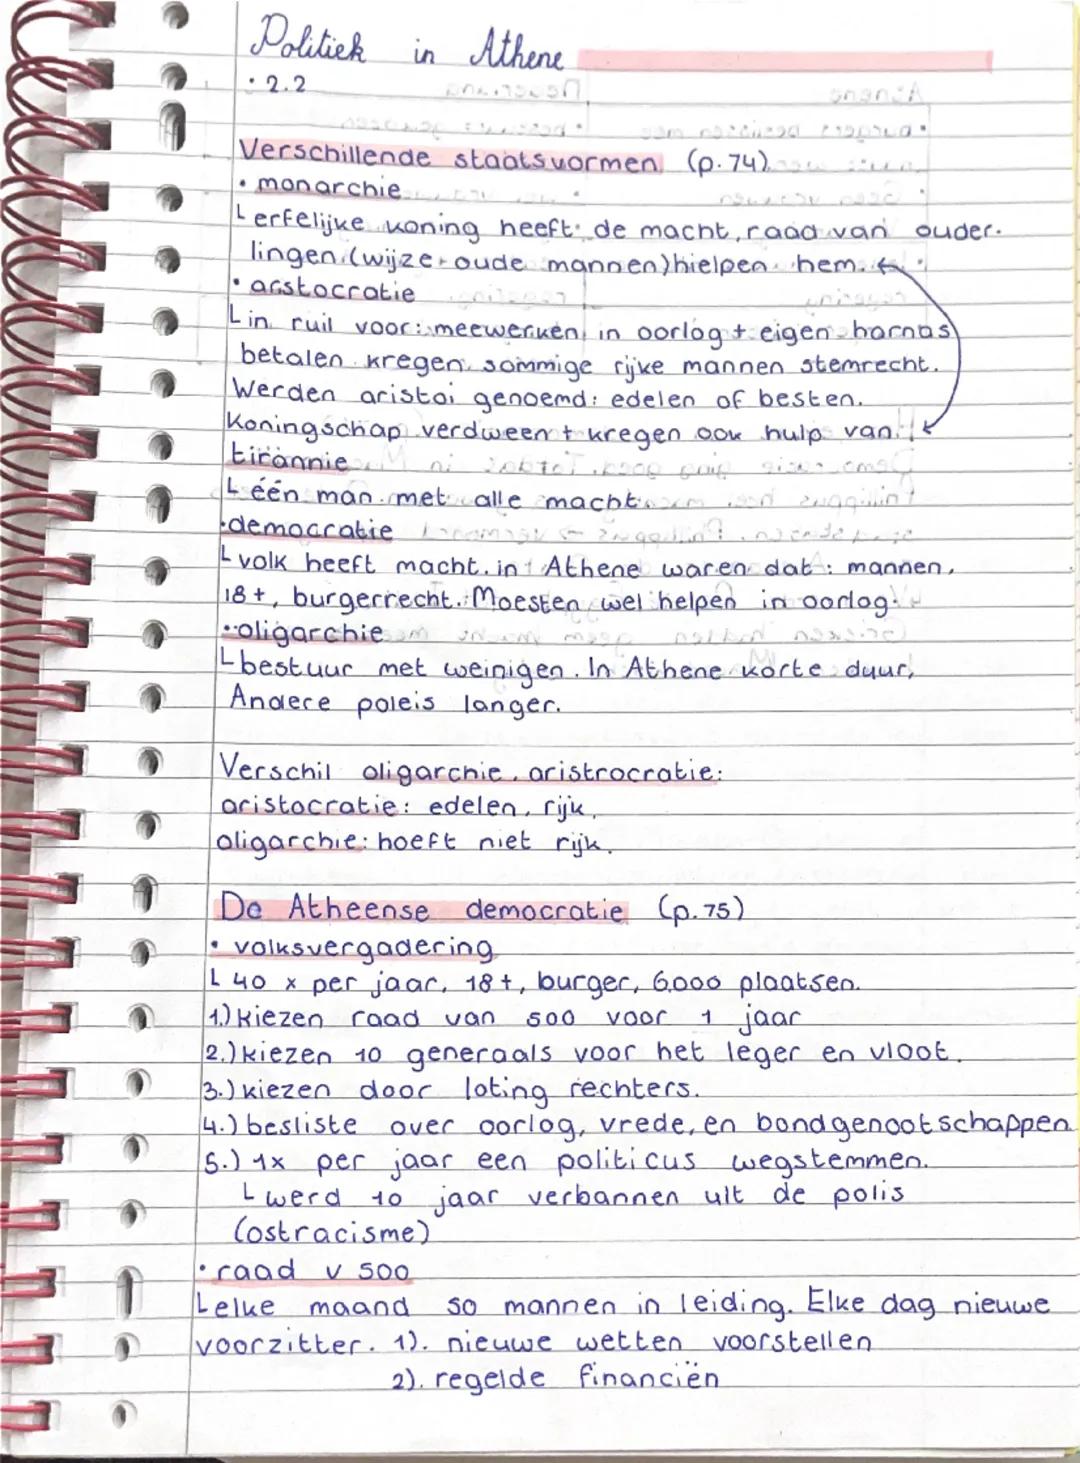 Politiek in Athene
• 2.2
Verschillende staatsvormen (p.74)
• monarchie
L erfelijke koning heeft de macht, raad van ouder-
lingen (wijze oude mannen) hielpen hem.
• arstocratie
L in ruil voor: meewerken in oorlog + eigen harnas
betalen kregen sommige rijke mannen stemrecht.
Werden aristoi genoemd: edelen of besten.
Koningschap verdween + kregen ook hulp van
tirannie
L één man met alle macht
•democratie
L volk heeft macht. in Athene waren dat : mannen,
18+, burgerrecht. Moesten wel helpen in oorlog.
•oligarchie
L bestuur met weinigen. In Athene korte duur,
Andere poleis langer.
Verschil oligarchie, aristrocratie:
aristocratie: edelen, rijk,
oligarchie: hoeft niet rijk.
De Atheense democratie (p.75)
• volksvergadering
L 40 x per jaar, 18+, burger, 6.000 plaatsen.
1.) kiezen raad van 500 voor 1 jaar
2.) kiezen 10 generaals voor het leger en vloot.
3.) kiezen door loting rechters.
4.) besliste over oorlog, vrede, en bondgenootschappen
5.) 1x per jaar een politicus wegstemmen.
L werd 10 jaar verbannen uit de polis
(ostracisme)
• raad v 500
L elke maand 50 mannen in leiding. Elke dag nieuwe
voorzitter. 1). nieuwe wetten voorstellen
2). regelde financiën